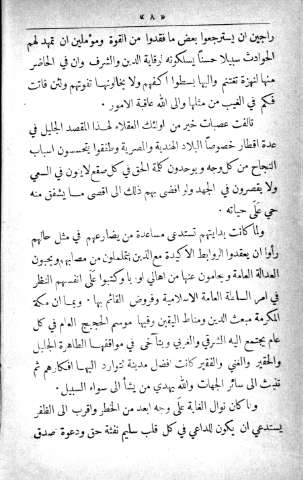 « ٨ »
راجين ان يسترجعوا بعض ما فقدوا من القوة ومؤملين ان تمهد لهم
الحوادث سبيلا حسنا يسلكونه لوقاية الدين والشرف وان في الحاضر
منها لنهزة تغتنم واليها بسطوا اكفهم ولا يخالونها تفوتهم ولئن فاتت
فكم في الغيب من مثلها والى الله عاقبة الامور .
تألفت عصبات خير من اولئك العقلاء لهذا المقصد الجليل في
عدة اقطار خصوصاً البلاد الهندية والمصرية وطفقوا يتحسسون اسباب
النجاح من كل وجه ويوحدون كلمة الحق في كل صقع لا ينون في السعي
ولا يقصرون في الجهد ولو افضى بهم ذلك الى اقصى ما يشفق منه
حي على حياته .
ولما كانت بدايتهم تستدعي مساعدة من يضارعهم في مثل حالهم
رأوا ان يعقدوا الروابط الاكيدة مع الذين يتململون من مصابهم ويحبون
العدالة العامة ويحامون عنها من اهالي اوربا وكتبوا على انفسهم النظر
في امر السلطة العامة الاسلامية وفروض القائم بها . وبما ان مكة
المكرمة مبعث الدين ومناط اليقين وفيها موسم الحجيج العام في كل
عام يجتمع اليه الشرقي والغربي ويتآخى في مواقفها الطاهرة الجليل
والحقير والغني والفقير كانت افضل مدينة تتوارد اليها افكارهم ثم
تنبث الى سائر الجهات والله يهدي من يشأ الى سواء السبيل .
ولما كان نوال الغاية على وجه ابعد من الخطر واقرب الى الظفر
يستدعي ان يكون للداعي في كل قلب سليم نفثة حق ودعوة صدق